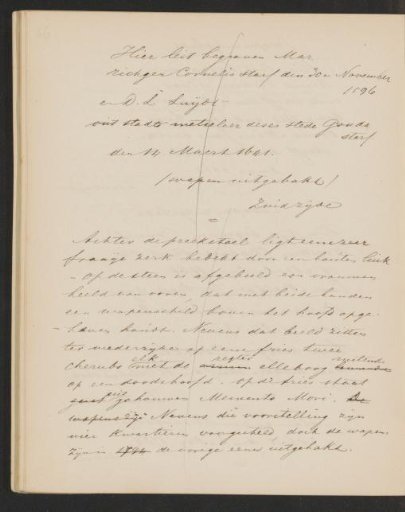 Hier leit begraven Mar
ritchgen Cornelis starf den 30en November
1596
en D. L. Luijts
out stadts metselaer deser stede Gouda
starf
den 12 Maert 1641.
(wapen uitgehakt)
Zuidzijde
=
Achter de preekstoel ligt eene zeer
fraaije zerk bedekt door een houten luik
- Op de steen is afgebeeld een vrouwen
beeld van voren, dat met beide handen
een wapenschild boven het hoofd opge-
heven houdt. Nevens dat beeld zitten
ter wederzijde op eene fries twee
cherubs elk met de regter elleboog
op een doodshoofd. Op de fries staat
gehouwen Memento Mori.
Nevens die voorstelling zijn
vier kwartieren voorgesteld, doch de wapen
zijn de vorige eene uitgehakt.